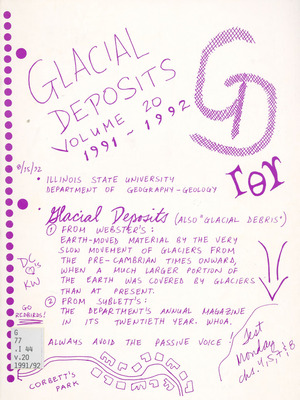 GLACIAL
DEPOSITS
VOLUME 20
1991-1992
GD
ΓΘΥ
• ILLINOIS STATE UNIVERSITY
DEPARTMENT OF GEOGRAPHY-GEOLOGY
• Glacial Deposits (ALSO "GLACIAL DEBRIS")
① FROM WEBSTER'S:
EARTH-MOVED MATERIAL BY THE VERY
SLOW MOVEMENT OF GLACIERS FROM
THE PRE-CAMBRIAN TIMES ONWARD,
WHEN A MUCH LARGER PORTION OF
THE EARTH WAS COVERED BY GLACIERS
THAN AT PRESENT.
② FROM SUBLETT'S:
THE DEPARTMENT'S ANNUAL MAGAZINE
IN ITS TWENTIETH YEAR. WHOA.
ALWAYS AVOID THE PASSIVE VOICE!
KW
GO
REDBIRDS!
G
77
.I 44
v.20
1991/92
Test
Monday
chs. 4,5,7,&8
CORBETT'S
PARK